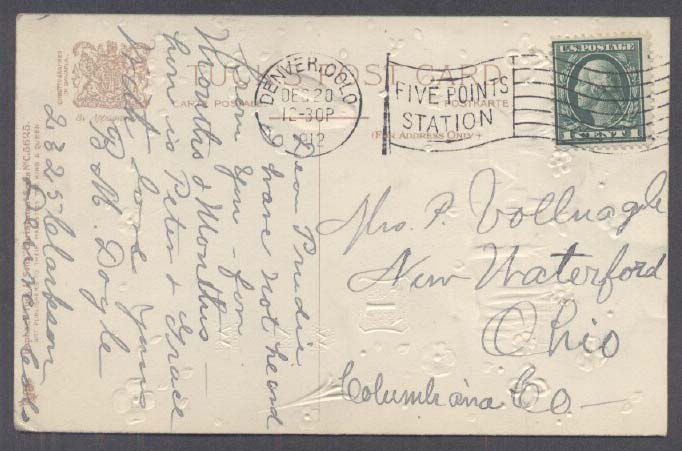 TUCK'S POST CARD
CARTE POSTALE
POSTKARTE
(FOR ADDRESS ONLY)
DENVER, COLO.
DEC 20
12-30P
1912
FIVE POINTS
STATION
U.S. POSTAGE
1 CENT 1
Dear Prudie
I have not heard
from you - for
Months & Months -
how is Peter & Grace
With love yours
B. M. Doyle
2325 Clarkson
Denver Colo
Mrs. P. Vollnagle
New Waterford
Ohio
Columbiana Co -